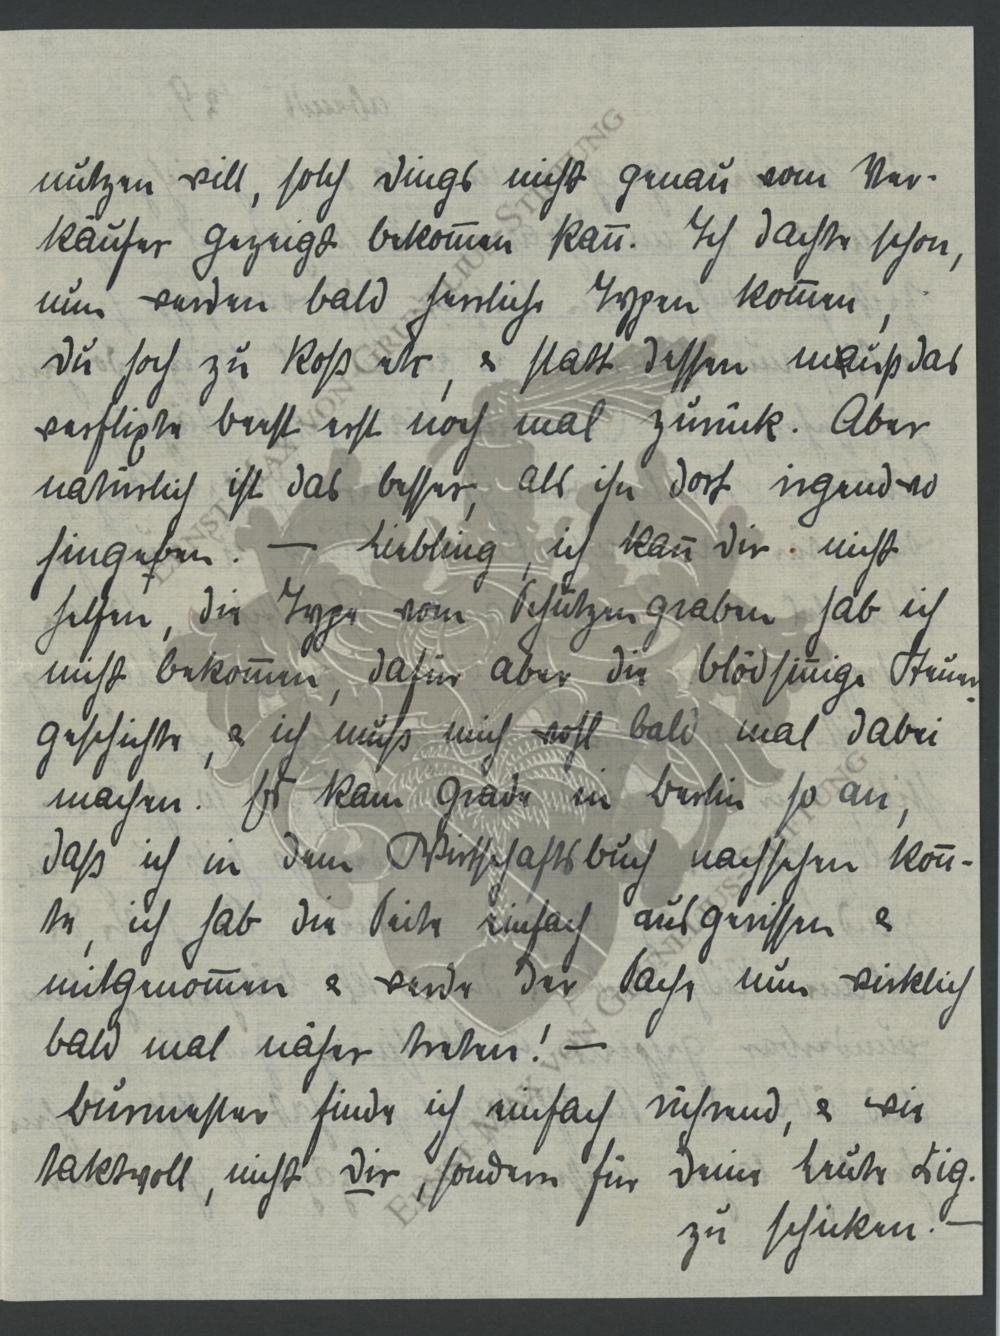 nützen will, solch Dings nicht genau vom Ver-
käufer gezeigt bekom̄en kan̄. Ich dachte schon,
nun werden bald herrliche Typen kom̄en,
du hoch zu Roß etc, & statt dessen muß das
verflixte beest erst noch mal zurück. Aber
natürlich ist das besser, als ihn dort irgendwo
hingeben. — Liebling, ich kan̄ dir nicht
helfen, die Type vom Schützengraben hab ich
nicht bekom̄en, dafür aber die blödsin̄ige Steuer-
geschichte, & ich muß mich wohl bald mal dabei
machen. Es kam grade in Berlin so an,
daß ich in dem Wirtschaftsbuch nachsehen kon̄-
te, ich hab die Seite einfach ausgerissen &
mitgenom̄en & werde der Sache nun wirklich
bald mal näher treten! —
Burmester finde ich einfach rührend, & wie
taktvoll, nicht dir, sondern für deine Leute Zig.
zu schicken. —
ERNST MAX VON GRUNELIUS STIFTUNG
ERNST MAX VON GRUNELIUS STIFTUNG